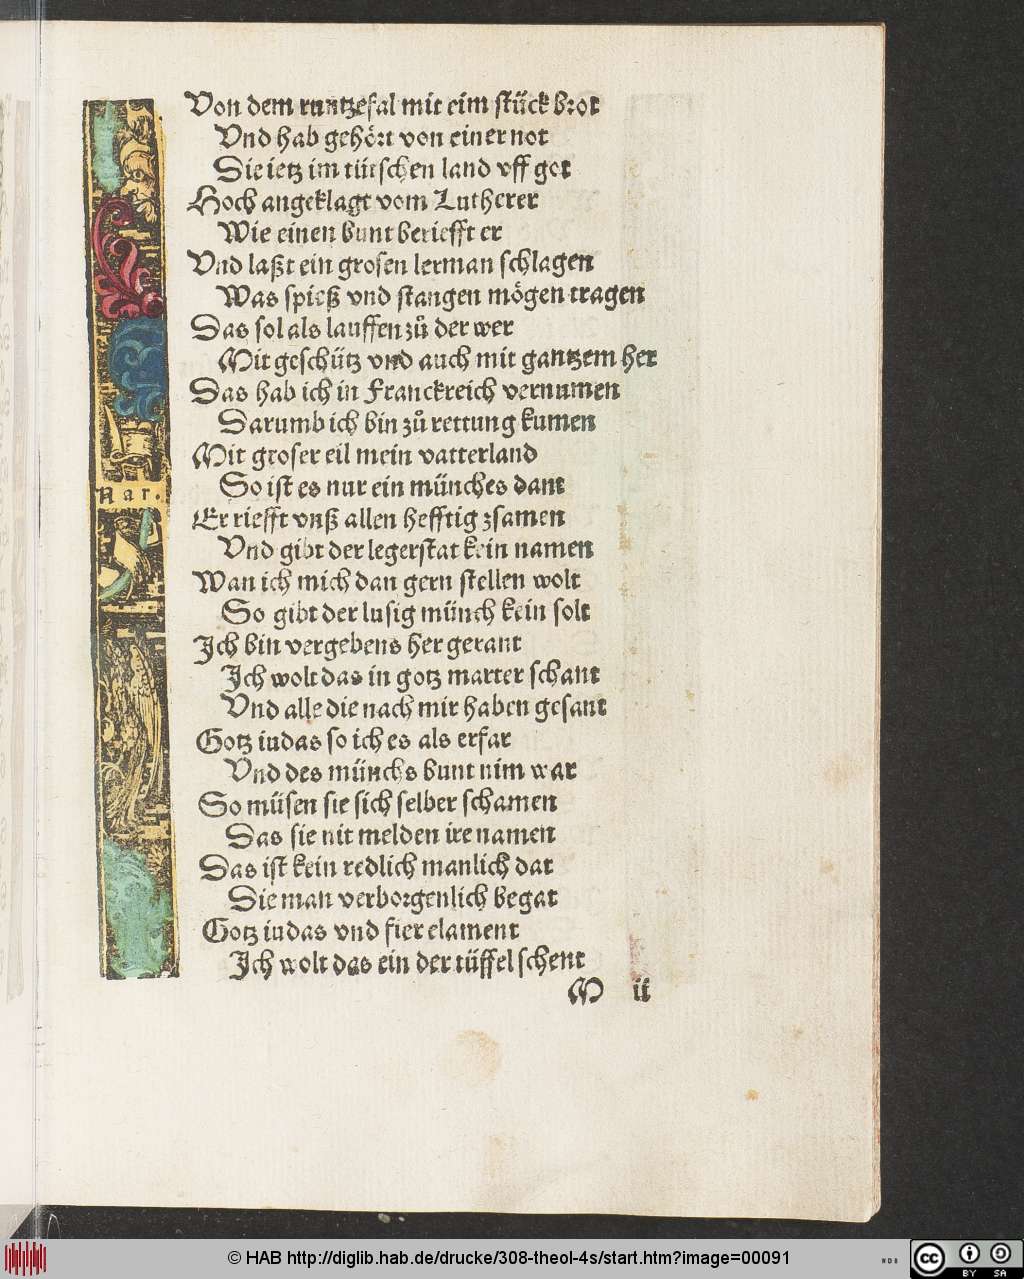 Von dem runtzefal mit eim stück brot
Vnd hab gehört von einer not
Die ietz im tütschen land vff got
Hoch angeklagt vom Lutherer
Wie einen bunt beriefft er
Vnd laßt ein grosen lerman schlagen
Was spieß vnd stangen mögen tragen
Das sol als lauffen zů der wer
Mit geschütz vnd auch mit gantzem her
Das hab ich in Franckreich vernumen
Darumb ich bin zů rettung kumen
Mit groser eil mein vatterland
So ist es nur ein münches dant
Nar.
Er riefft vnß allen hefftig zsamen
Vnd gibt der legerstat kein namen
Wan ich mich dan gern stellen wolt
So gibt der lusig münch kein solt
Ich bin vergebens her gerant
Ich wolt das in gotz marter schant
Vnd alle die nach mir haben gesant
Gotz iudas so ich es als erfar
Vnd des münchs bunt nim war
So müsen sie sich selber schamen
Das sie nit melden ire namen
Das ist kein redlich manlich dat
Die man verborgenlich begat
Gotz iudas vnd fier elament
Ich wolt das ein der tüffel schent
M ii
© HAB http://diglib.hab.de/drucke/308-theol-4s/start.htm?image=00091
WDB
cc BY SA